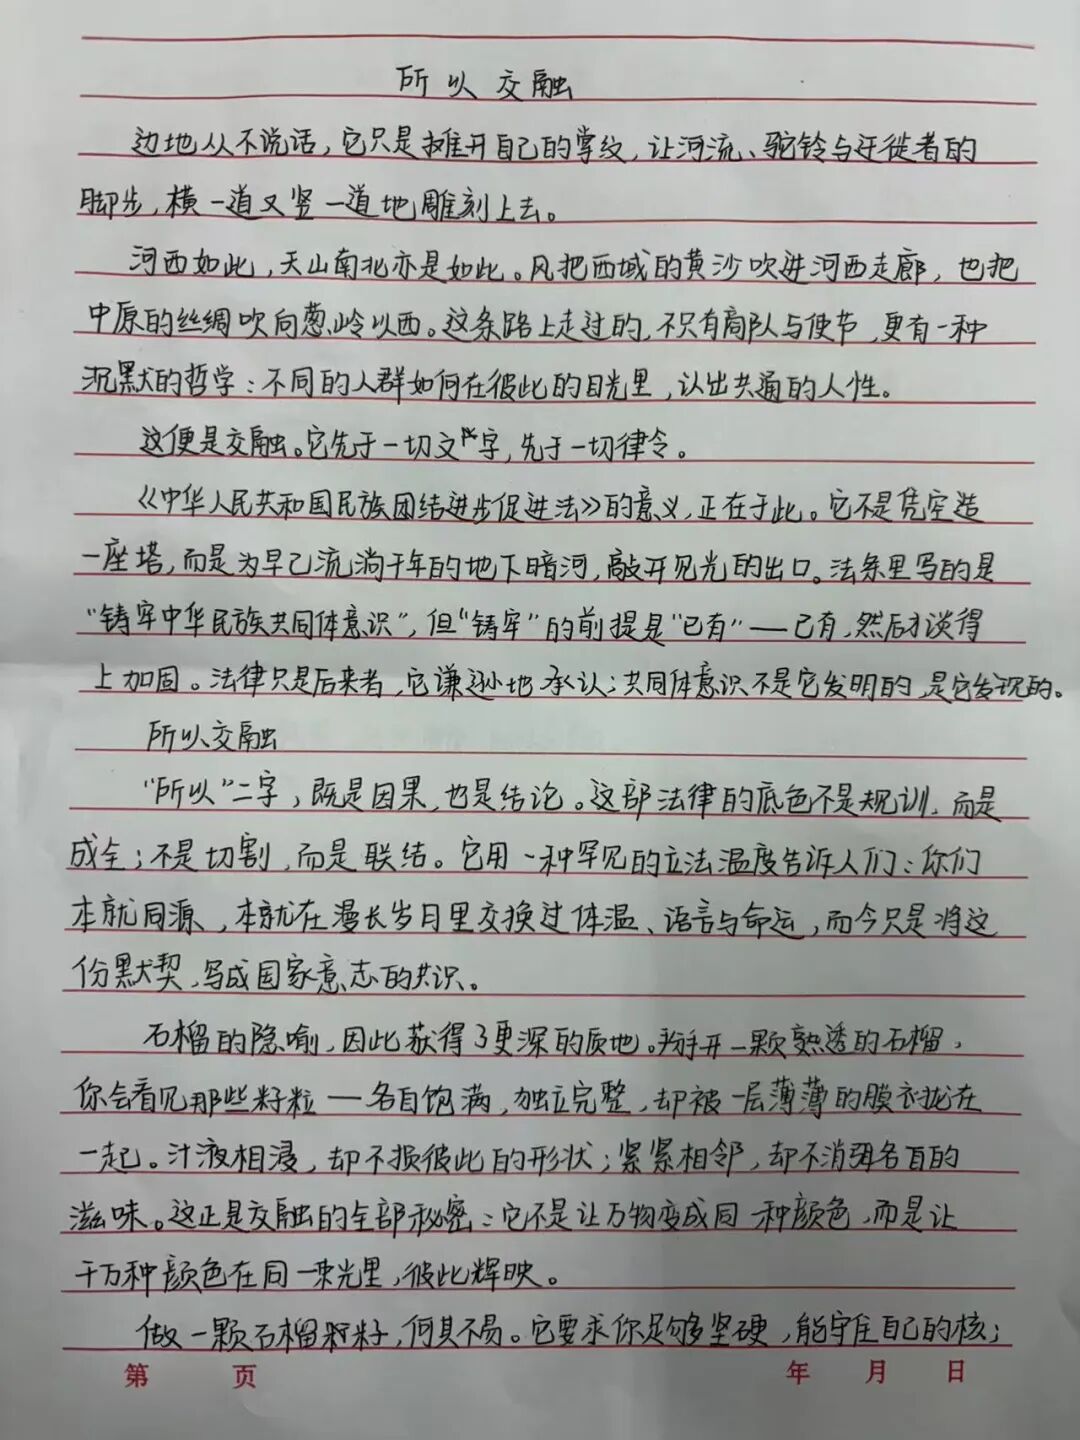 所以交融
边地从不说话，它只是摊开自己的掌纹，让河流、驼铃与迁徙者的
脚步，横一道又竖一道地雕刻上去。
河西如此，天山南北亦是如此。风把西域的黄沙吹进河西走廊，也把
中原的丝绸吹向葱岭以西。这条路上走过的，不只有商队与使节，更有一种
沉默的哲学：不同的人群如何在彼此的目光里，认出共通的人性。
这便是交融。它先于一切文字，先于一切律令。
《中华人民共和国民族团结进步促进法》的意义，正在于此。它不是凭空造
一座塔，而是为早已流淌千年的地下暗河，敲开见光的出口。法条里写的是
“铸牢中华民族共同体意识”，但“铸牢”的前提是“已有”——已有，然后才谈得
上加固。法律只是后来者，它谦逊地承认：共同体意识不是它发明的，是它发现的。
所以交融
“所以”二字，既是因果，也是结论。这部法律的底色不是规训，而是
成全；不是切割，而是联结。它用一种罕见的立法温度告诉人们：你们
本就同源，本就在漫长岁月里交换过体温、语言与命运，而今只是将这
份默契，写成国家意志的共识。
石榴的隐喻，因此获得了更深的质地。掰开一颗熟透的石榴，
你会看见那些籽粒——各自饱满，独立完整，却被一层薄薄的膜衣拢在
一起。汁液相浸，却不损彼此的形状；紧紧相邻，却不消弭各自的
滋味。这正是交融的全部秘密：它不是让万物变成同一种颜色，而是让
千万种颜色在同一束光里，彼此辉映。
做一颗石榴籽，何其不易。它要求你足够坚硬，能守住自己的核；
第 页 年 月 日